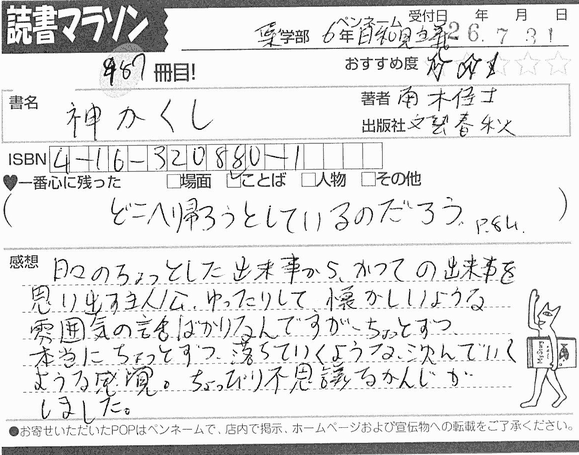 読書マラソン
薬学部 6年 ペンネーム 日和見主義 受付日 26年7月31日
987冊目! おすすめ度
書名 神かくし
著者 南木佳士
出版社 文藝春秋
ISBN 4-16-320880-1
♥一番心に残った □場面 ☑ことば □人物 □その他
(どこへ帰ろうとしているのだろう。 P.86.)
感想 日々のちょっとした出来事から、かつての出来事を
思い出す主人公。ゆったりして、懐かしいような
雰囲気の話ばかりなんですが、ちょっとずつ
本当にちょっとずつ、落ちていくような、沈んでいく
ような感覚。ちょっぴり不思議なかんじが
しました。
●お寄せいただいたPOPはペンネームで、店内で掲示、ホームページおよび宣伝物への転載をご了承ください。